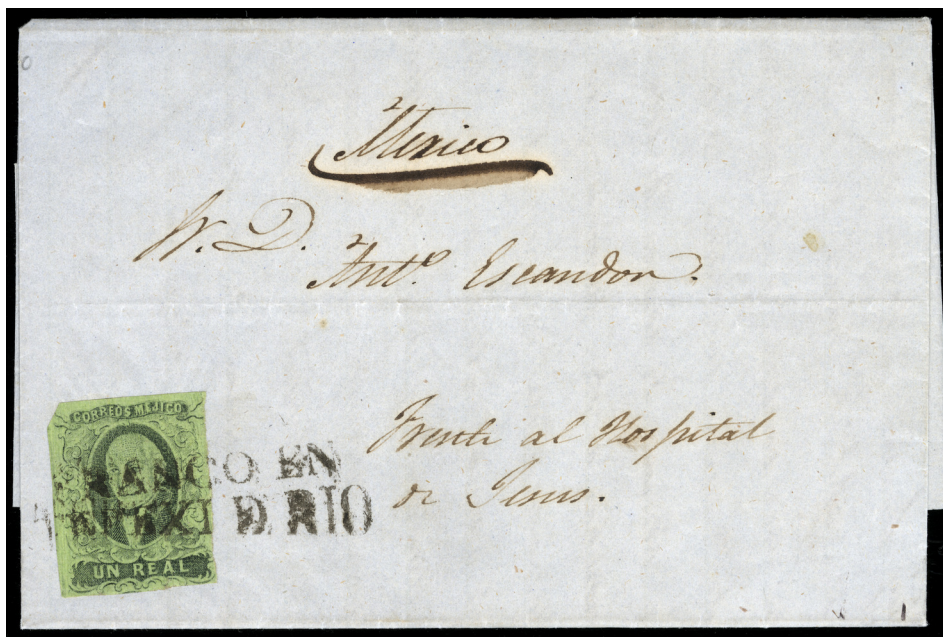 Mexico
W. D.
Antº. Escandon.
Frente al Hospital
de Jesus.
CORREOS MEJICO
FRANCO EN
D. RIO
UN REAL